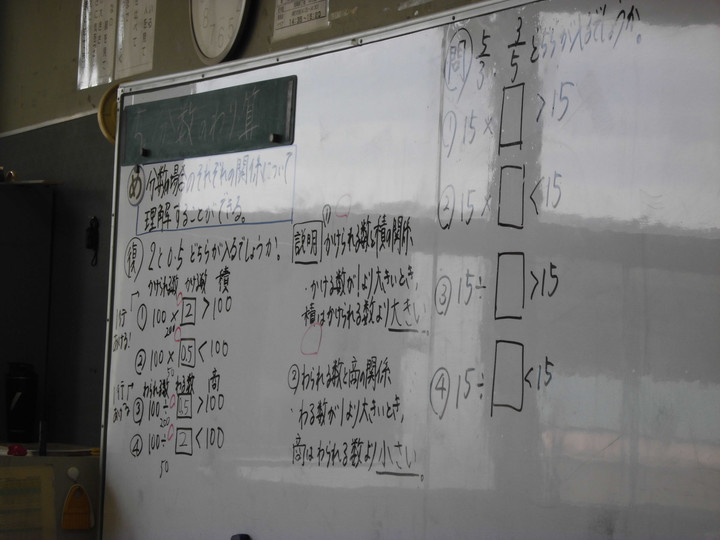 分数のわり算
め 分数の場合のそれぞれの関係について
理解することができる。
復 2と0.5どちらが入るでしょうか。
かけられる数 かける数 積
① 100 × 2 > 100
200
② 100 × 0.5 < 100
50
わられる数 わる数 商
③ 100 ÷ 0.5 > 100
200
④ 100 ÷ 2 < 100
50
1行
あける!
1行
あける
説明
① かけられる数と積の関係
・かける数が1より大きいとき、
積はかけられる数より大きい。
② わられる数と商の関係
・わる数が1より大きいとき、
商はわられる数より小さい。
問 5/3、3/5 どちらが入るでしょうか。
① 15 × □ > 15
② 15 × □ < 15
③ 15 ÷ □ > 15
④ 15 ÷ □ < 15